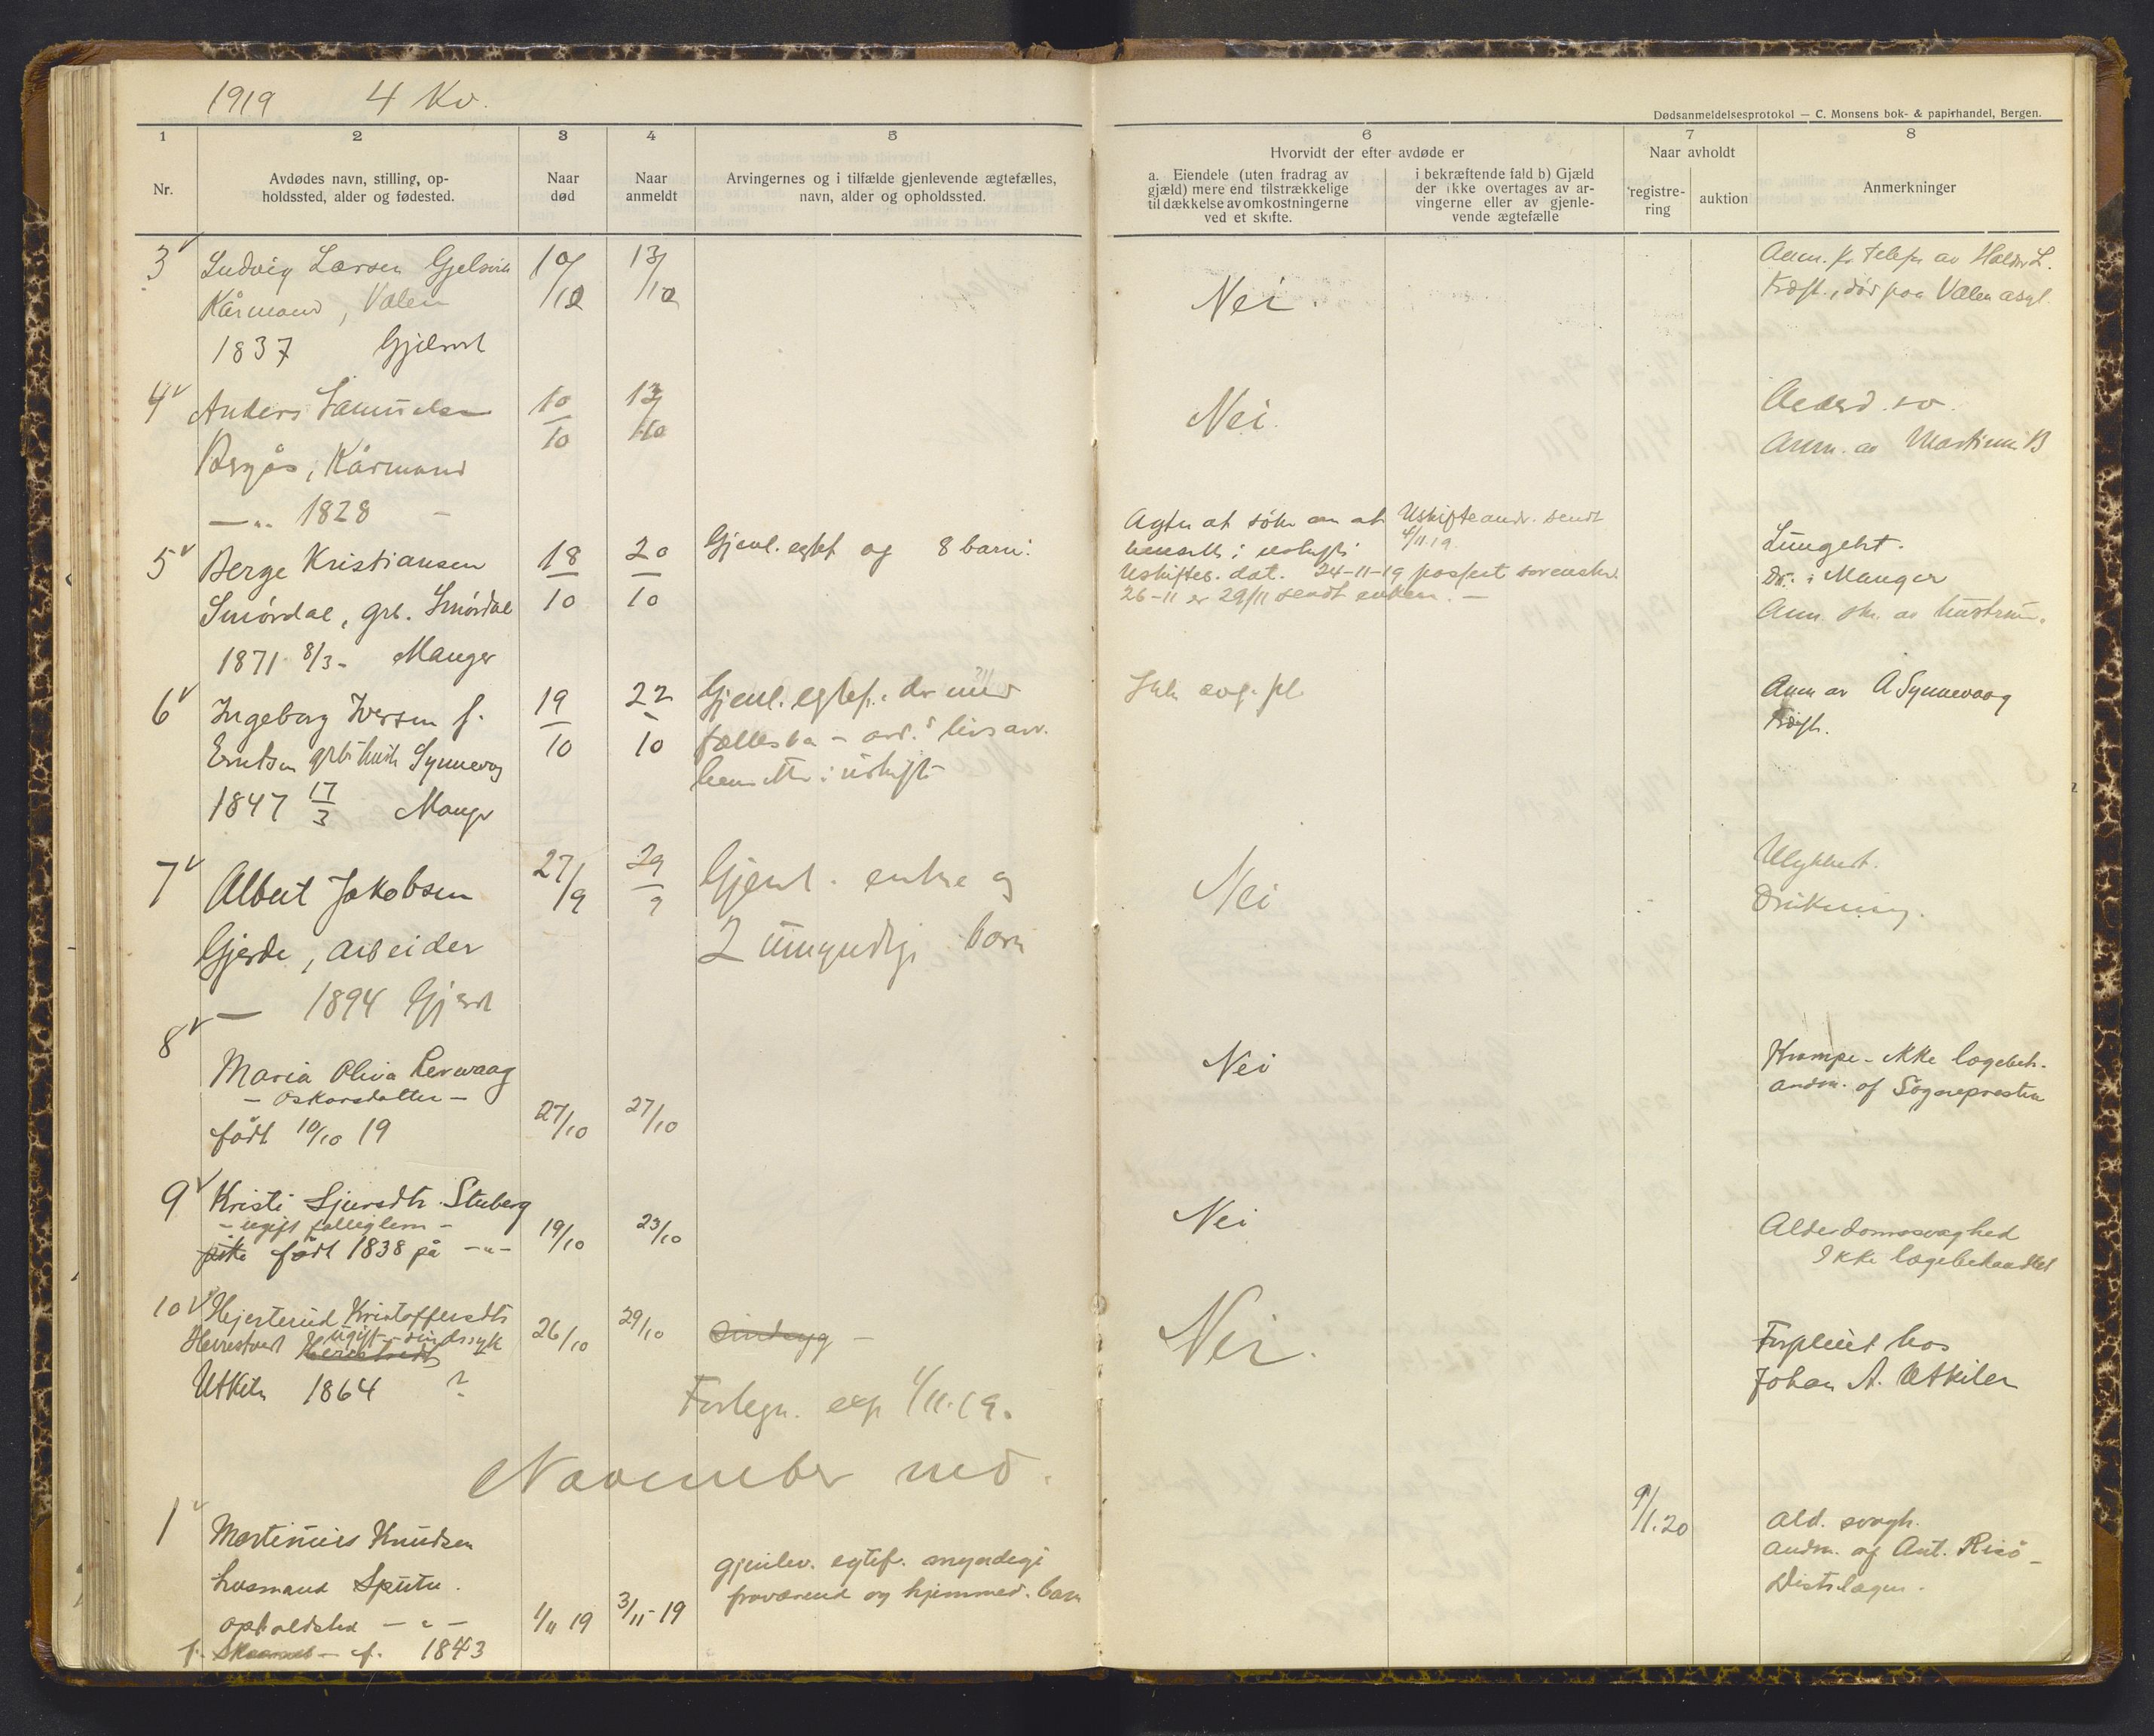 1919 4 Kv.
Dødsanmeldelsesprotokol — C. Monsens bok- & papirhandel, Bergen.
1 2 3 4 5 6 7 8
Nr.
Avdødes navn, stilling, op-
holdssted, alder og fødested.
Naar
død
Naar
anmeldt
Arvingernes og i tilfælde gjenlevende ægtefælles,
navn, alder og opholdssted.
Hvorvidt der efter avdøde er
a. Eiendele (uten fradrag av
gjæld) mere end tilstrækkelige
til dækkelse av omkostningerne
ved et skifte.
i bekræftende fald b) Gjæld
der ikke overtages av ar-
vingerne eller av gjenle-
vende ægtefælle
Naar avholdt
registre-
ring
auktion
Anmerkninger
3 Ludvig Larsen Gjelsvik
Kårmand, Valen
1837
10/10
13/10
Nei.
Anm. pr telefon av L.
død paa Valen asyl.
4 Anders Samuelsen
Bergås, Kårmand
—„— 1828 -
10/10
13/10
Nei.
Anm. av B
5 Berge Kristiansen
Smørdal, grb. Smørdal
1871 8/3 - Manger
18/10
20/10
Gjenl. egtef og 8 barn.
Agter at søke om at
i uskifte
Uskifteandr. sendt
4/11.19.
Uskifteb. dat. 24-11-19
26-11 er 29/11 sendt enken. —
Lungebet.
Dr. i Manger
Anm. av hustrun.
6 Ingeborg Iversen f.
grb. Synnevaag
1847 17/3 Manger
19/10
22/10
Gjenl. egtef. der med
i uskifte
Anm av A Synnevaag
7 Albert Jakobsen
Gjerde, arbeider
— 1894
27/9
29/9
Gjenl. enke og
2 umyndige barn
Nei
Ulykkest.
Drukning.
8 Maria Oliva Lervaag
- Oskarsdatter -
født 10/10 19
27/10
27/10
Nei
Krampe - ikke lægebeh.
andm. af Sognepresten
9 Kristi Sjursdtr. Stuberg
- ugift fattiglem -
pike født 1838 på -„-
19/10
23/10
Nei
Alderdomssvaghed
Ikke lægebehandlet
10 Hjertrud Kristoffersdtr
ugift - sindssyk
Utkiln 1864 ?
26/10
29/10
Nei.
Forpleiet hos
Johan A. Utkilen
exp 1/11.19.
November md.
1 Martinius Knudsen
husmand
opholdsted —„—
f. 1843
1/11 19
3/11-19
gjenlev. egtef. myndige
fraværend og hjemmev. barn
9/1.20
Ald. svagh.
andm. af Ant. Risø -
Distr.lægen.